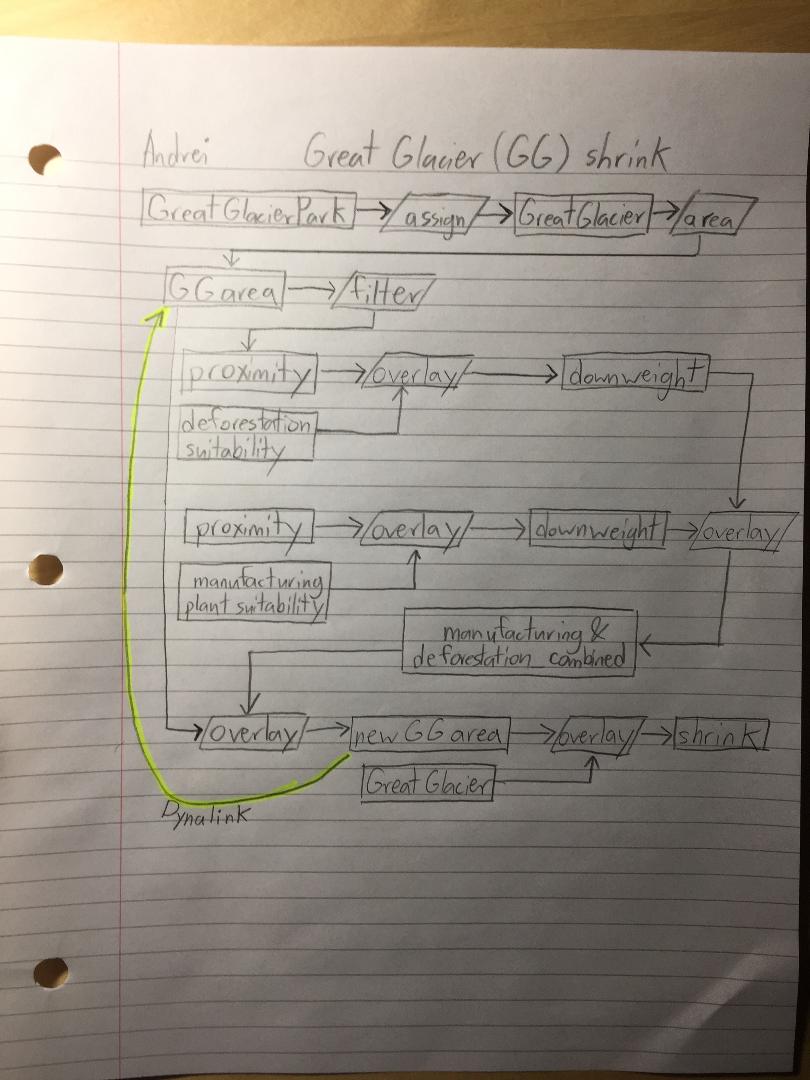 Andrei Great Glacier (GG) shrink
GreatGlacierPark assign GreatGlacier area
GGarea filter
proximity overlay downweight
deforestation
suitability
proximity overlay downweight overlay
manufacturing
plant suitability
manufacturing &
deforestation combined
overlay new GG area overlay shrink
Great Glacier
Dynalink